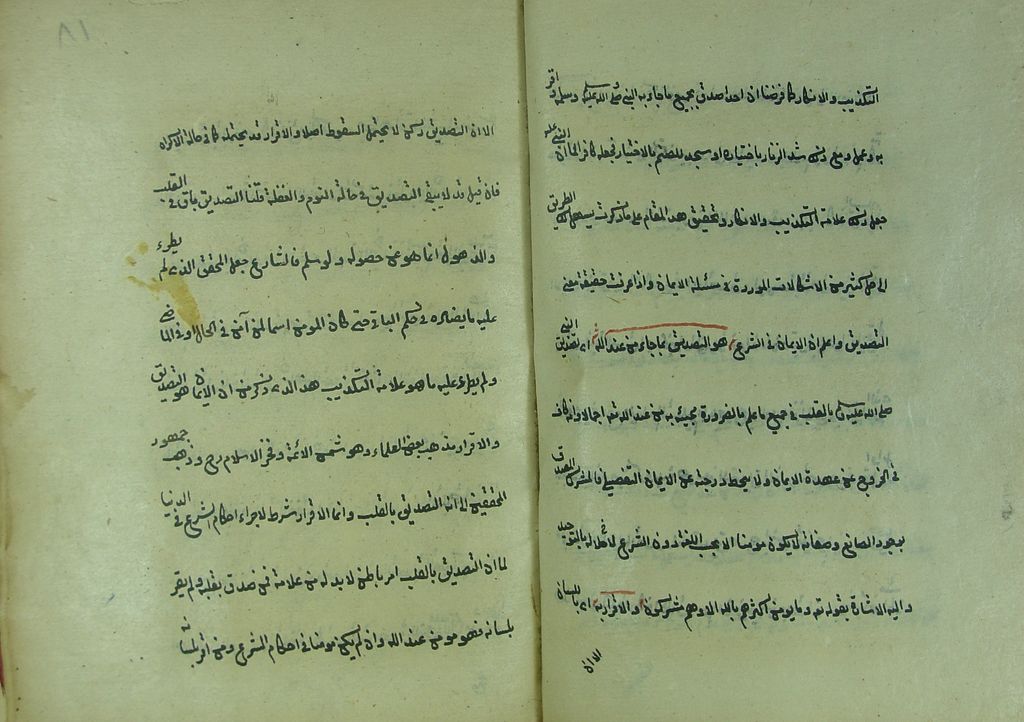 التكذيب والانكار كما فرضنا ان احدا صدق بجميع ما جاء به النبي صلى الله عليه وسلم واقر
به وعمل ومع ذلك شد الزنار باختياره او سجد للصنم بالاختيار نجعله كافرا لما ان النبي عليه
جعل ذلك علامة التكذيب والانكار وتحقيق هذا المقام على ما ذكرت يسهل لك الطريق
الى حل كثير من الاشكالات الموردة فى مسئلة الايمان واذا عرفت حقيقة معنى
التصديق واعلم ان الايمان فى الشرع هو التصديق بما جاء من عند الله اى تصديق النبى
صلى الله عليه وسلم بالقلب فى جميع ما علم بالضرورة مجيئه به من عند الله تعه اجمالا وانه كاف
فى الخروج عن عهدة الايمان ولا ينحط درجته عن الايمان التفصيلى فالمشرك المصدق
بوجود الصانع وصفاته لا يكون مومنا الا بحسب اللغة دون الشرع لاخلاله بالتوحيد
واليه الاشارة بقوله تعه وما يومن اكثرهم بالله الا وهم مشركون والاقرار به اى باللسان
الا ان
٨١
الا ان التصديق ركن لا يحتمل السقوط اصلا والاقرار قد يحتمله كما فى حالة الاكراه
فان قيل قد لا يبقى التصديق فى حالة النوم والغفلة قلنا التصديق باق فى القلب
والذهول انما هو عن حصوله ولو سلم فالشارع جعل المحقق الذى لم يطرء
عليه ما يضاده فى حكم الباقى حتى كان المومن اسما لمن آمن فى الحال او فى الماضى
ولم يطرء عليه ما هو علامة التكذيب هذا الذى ذكر من ان الايمان هو التصديق
والاقرار مذهب بعض العلماء وهو شمس الائمة وفخر الاسلام رح وذهب جمهور
المحققين الى انه التصديق بالقلب وانما الاقرار شرط لاجراء احكام الشرع فى الدنيا
لما ان التصديق بالقلب امر باطن لا بد له من علامة فمن صدق بقلبه ولم يقر
بلسانه فهو مومن عند الله وان لم يكن مومنا فى احكام الشرع ومن اقر بلسانه